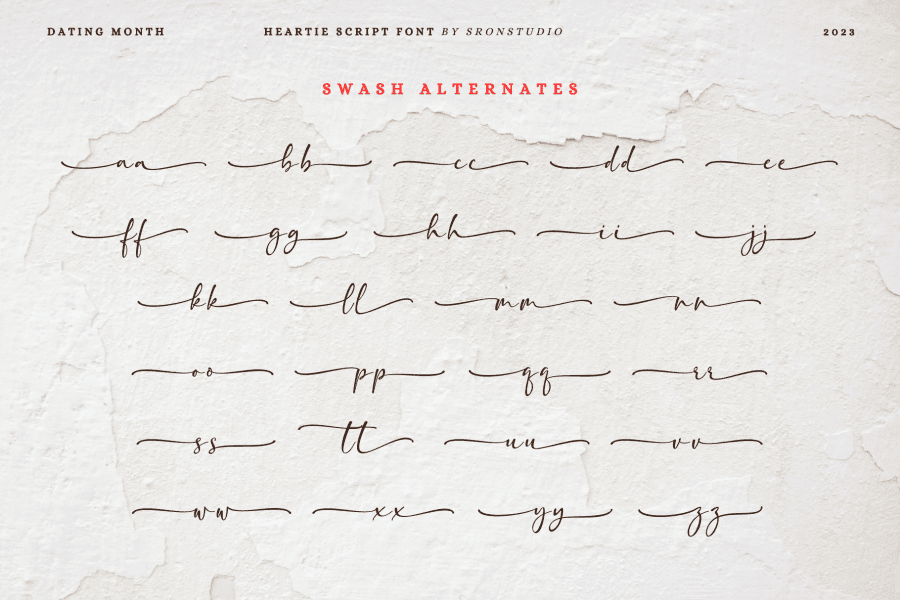 DATING MONTH HEARTIE SCRIPT FONT BY SRONSTUDIO 2023
SWASH ALTERNATES
aa bb cc dd ee
ff gg hh ii jj
kk ll mm nn
oo pp qq rr
ss tt uu vv
ww xx yy zz